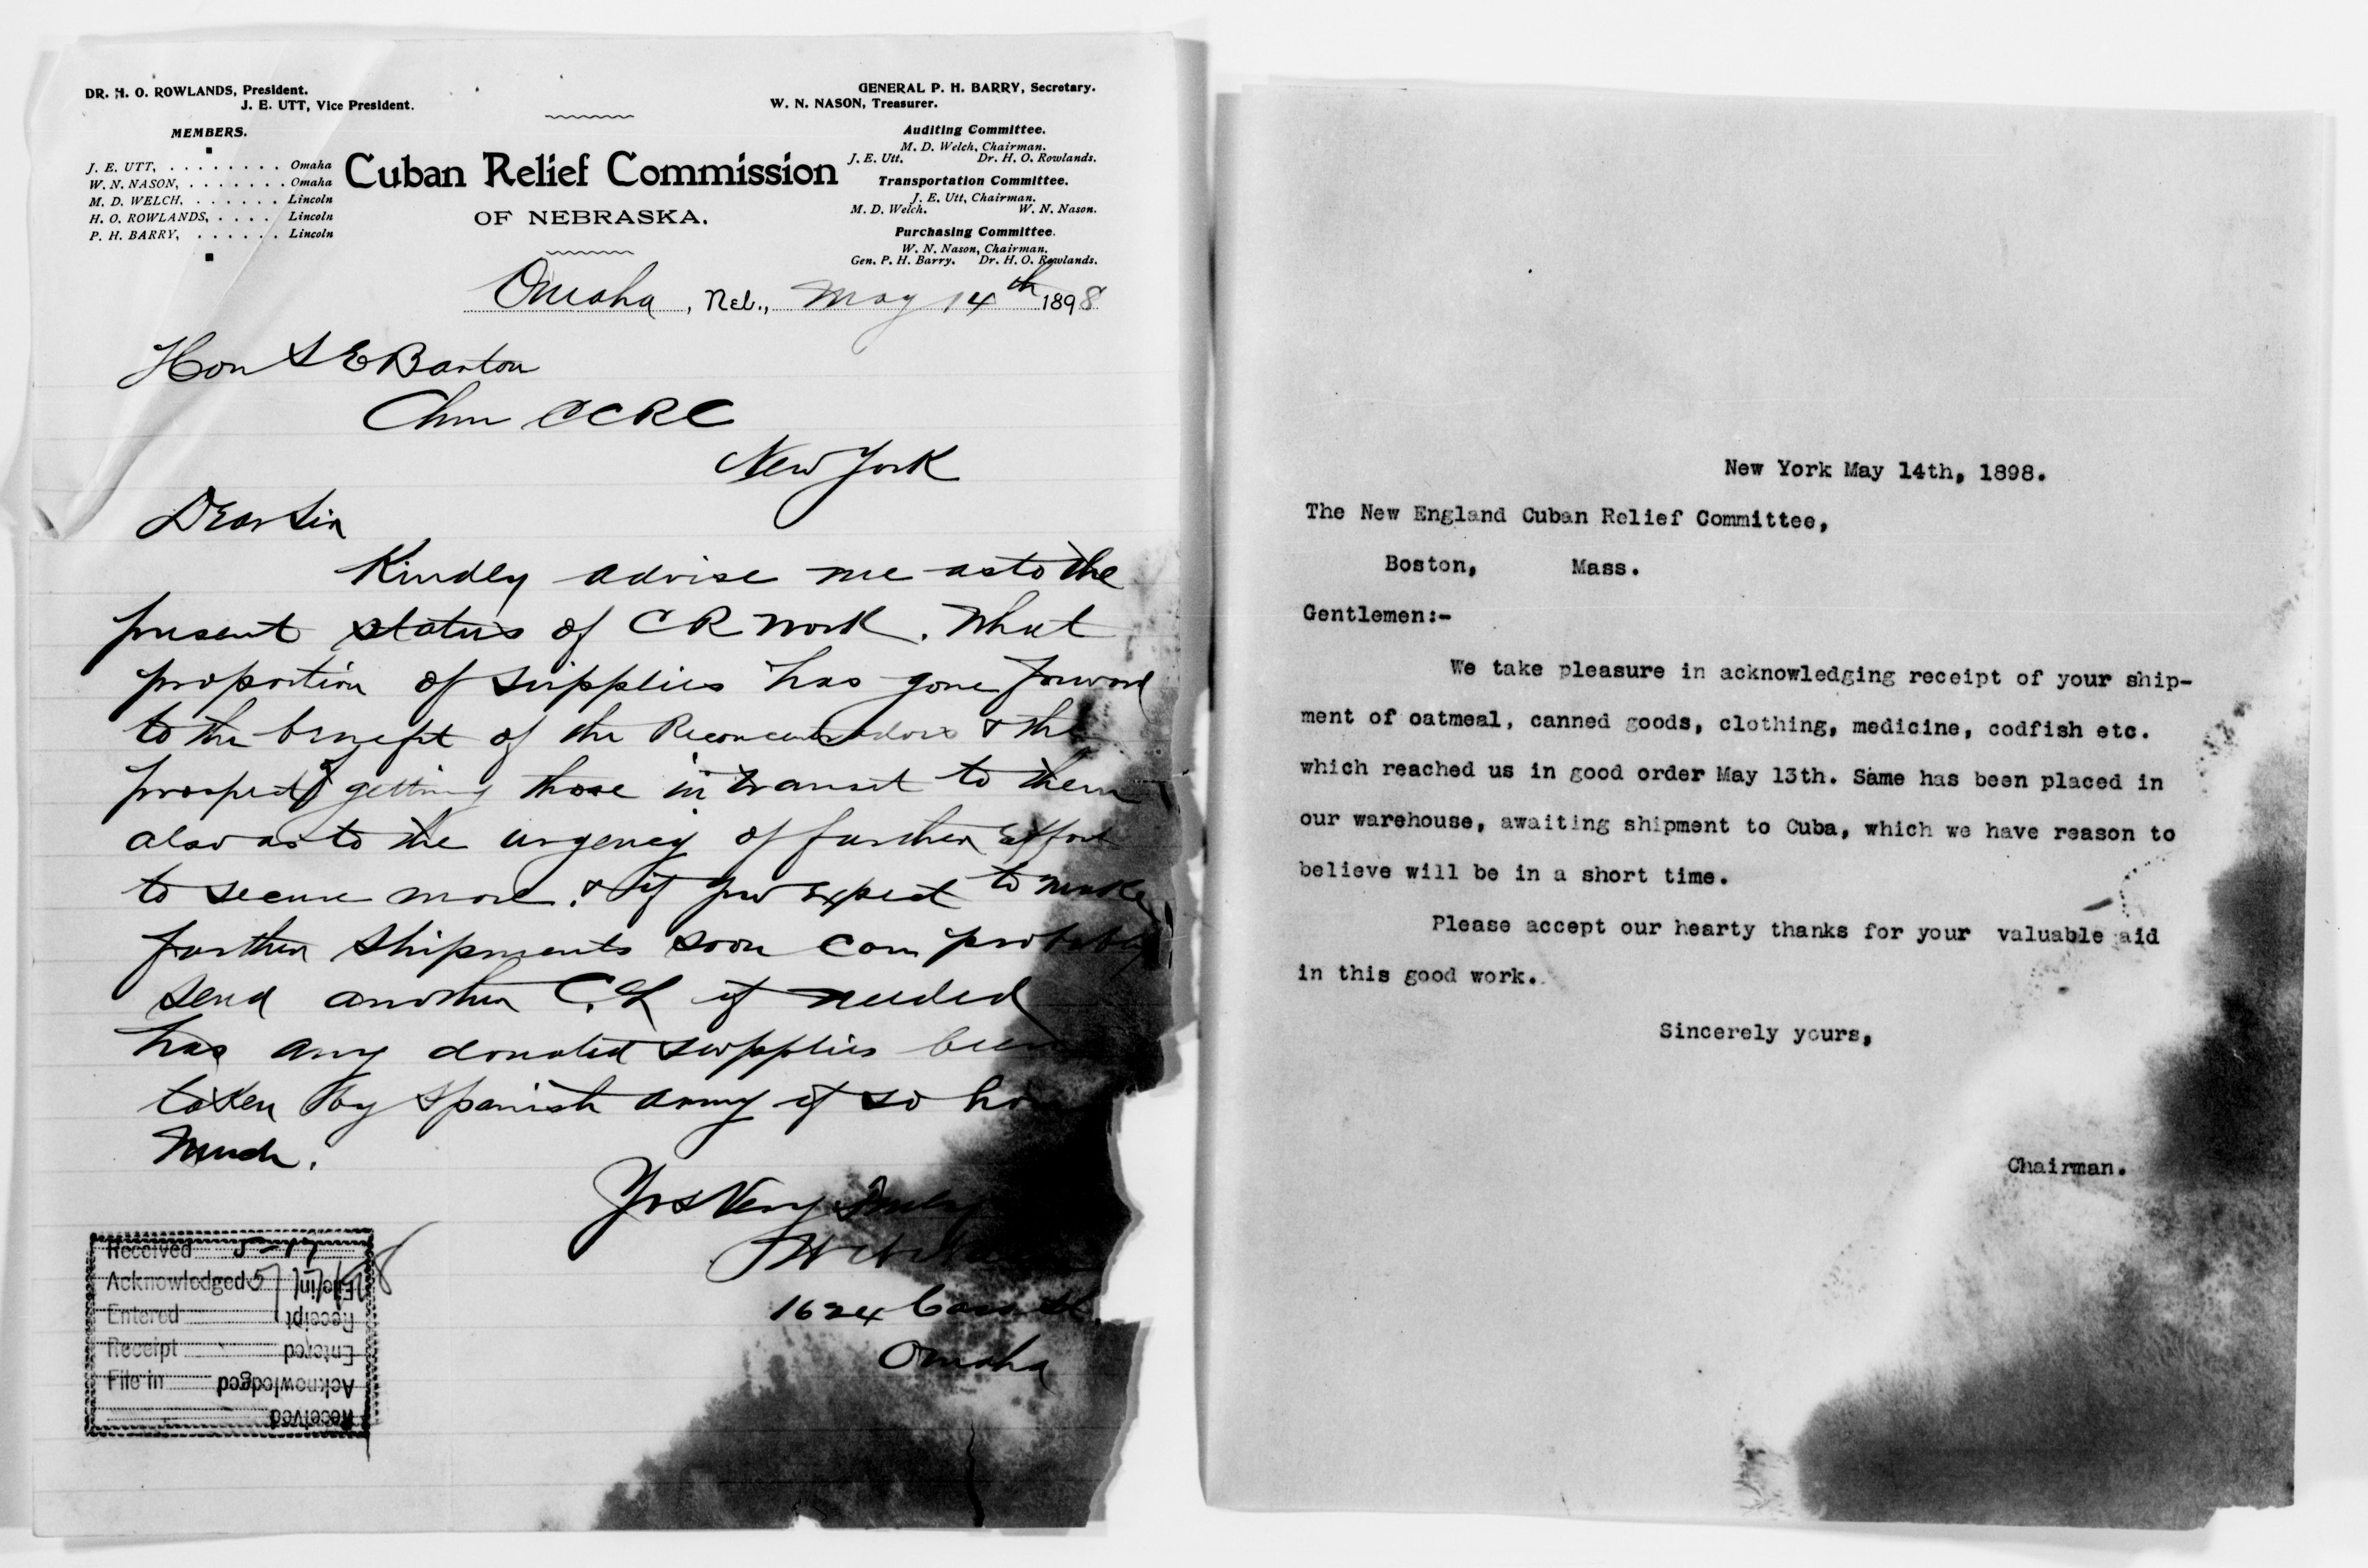 DR. H. O. ROWLANDS, President.
J. E. UTT, Vice President.
GENERAL P. H. BARRY, Secretary.
W. N. NASON, Treasurer.
MEMBERS.
J. E. UTT, . . . . . . . . Omaha
W. N. NASON, . . . . . . . Omaha
M. D. WELCH, . . . . . . . Lincoln
H. O. ROWLANDS, . . . . Lincoln
P. H. BARRY, . . . . . . Lincoln
Cuban Relief Commission
OF NEBRASKA.
Auditing Committee.
M. D. Welch, Chairman.
J. E. Utt. Dr. H. O. Rowlands.
Transportation Committee.
J. E. Utt, Chairman.
M. D. Welch. W. N. Nason.
Purchasing Committee.
W. N. Nason, Chairman.
Gen. P. H. Barry. Dr. H. O. Rowlands.
Omaha, Neb., May 14th 1898
Hon S E Barton
Chm CCRC
New York
Dear Sir
Kindly advise me as to the
present status of C R work. What
proportion of supplies has gone forward
to the benefit of the Reconcentrados & the
prospect of getting those in transit to them
also as to the urgency of further Effort
to secure more. & if you Expect to make
further shipments soon can probably
send another C.L if needed
has any donated supplies been
taken by Spanish army if so how
Much.
Yrs Very Truly
1624 Cass St
Omaha
Received 5-17
Acknowledged
Entered
Receipt
File in
File in
Receipt
Entered
Acknowledged
Received
New York May 14th, 1898.
The New England Cuban Relief Committee,
Boston, Mass.
Gentlemen:-
We take pleasure in acknowledging receipt of your ship-
ment of oatmeal, canned goods, clothing, medicine, codfish etc.
which reached us in good order May 13th. Same has been placed in
our warehouse, awaiting shipment to Cuba, which we have reason to
believe will be in a short time.
Please accept our hearty thanks for your valuable aid
in this good work.
Sincerely yours,
Chairman.